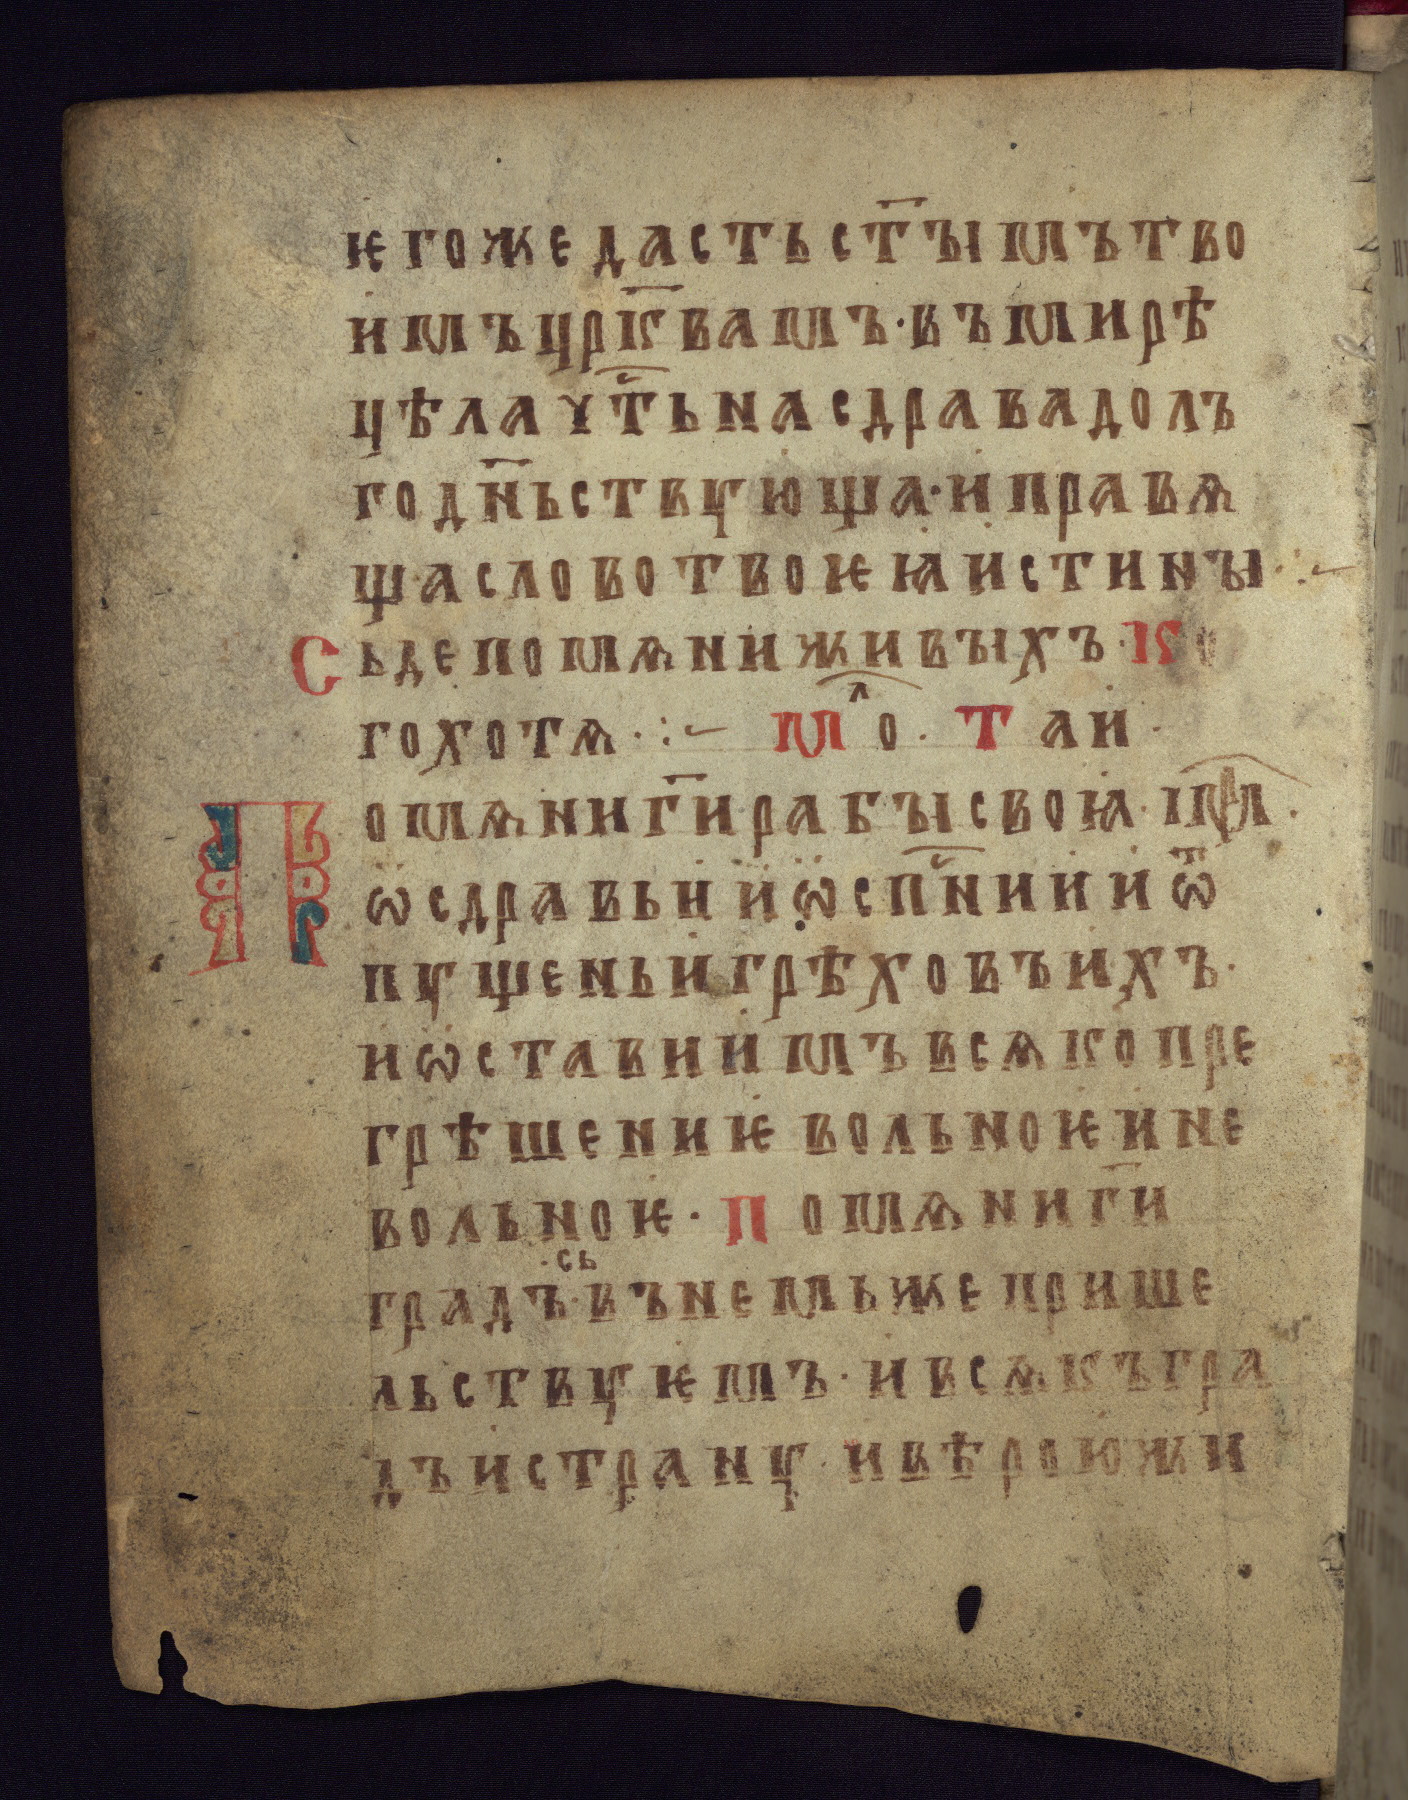 ѥгожедастьст҃ъімътво
имъцр҃квамъ·въмирѣ
цѣлаꙋт҇ьнасдравадолъ
годн҃ьствꙋюща·иправѧ
щасловотвоѥꙗистинъі·:~
Сьдепомѧниживъіхъ·Ко
гохотѧ·:~ Мⷧо. Таи·
Помѧниг҃ирабъісвоꙗ·ім҃л·
ѡсдравьииѡсп҇нииіиѿ
пꙋщеньигрѣховъихъ·
иѡставиимъвсѧкопре
грѣшениѥвольноѥине
вольноѥ· Помѧниг҃и
градъ·сь·въньемьжепришe
льствꙋѥмъ·ивсѧкъгра
дъистранꙋ·ивѣроюжи